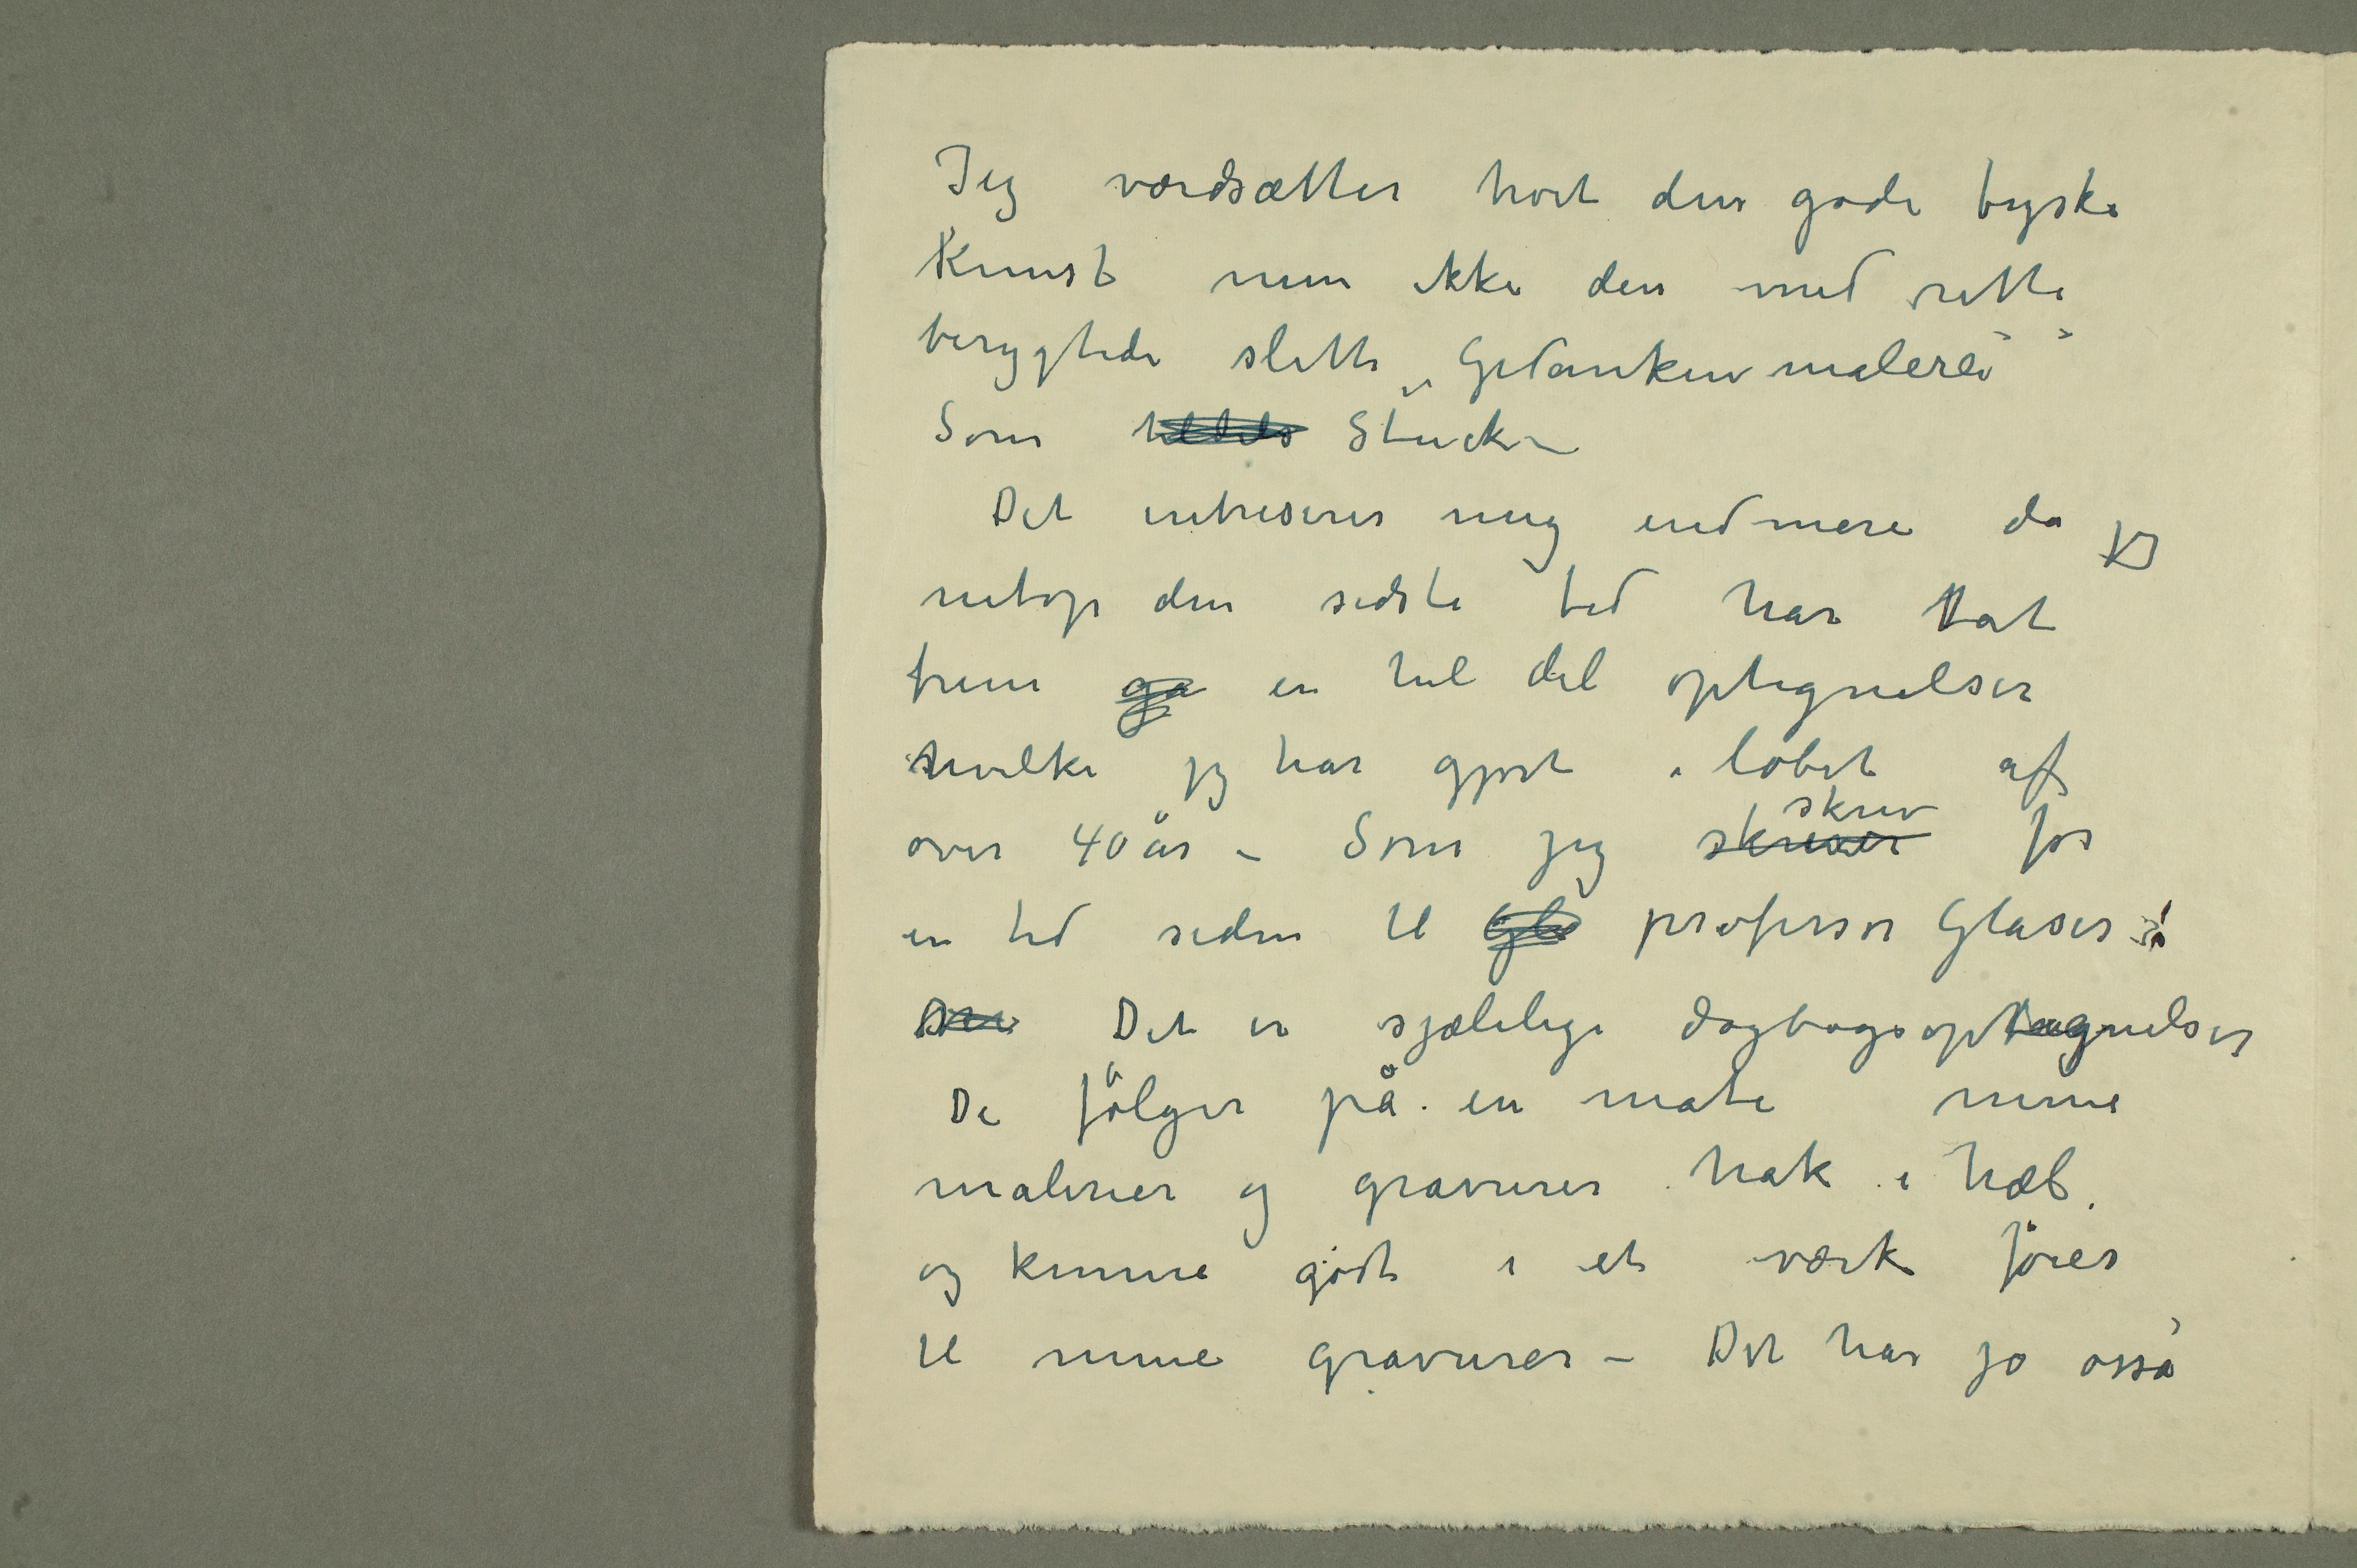 Jeg værdsætter høit den gode tyske
Kunst men ikke den med rette
berygtede slette „Gedankenmalerei”
Som Stuck –
Det intreserer mig endmere da jeg
netop den sidste tid har tat
frem ga en hel del optegnelser
hvilke jeg har gjort i løbet af
over 40 år – Som jeg skriver skrev for
en tid siden til Gla professor Glaser:
Det er sjælelige dagbogsoptegnelser
De følger på en måte mine
malerier og gravurer hak i hæl.
og kunne godt i et værk føies
til mine gravurer – Det har jo osså